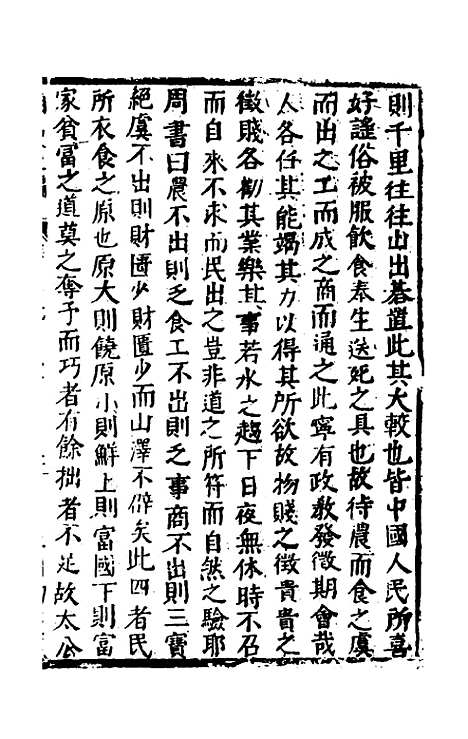 則千里往往山出棊置此其大較也皆中國人民所喜
好謠俗被服飲食奉生送死之具也故待農而食之虞
而出之工而成之商而通之此寧有政教發徵期會哉
人各任其能竭其力以得其所欲故物賤之徵貴貴之
徵賤各勸其業樂其事若水之趨下日夜無休時不召
而自來不求而民出之豈非道之所符而自然之驗耶
周書曰農不出則乏食工不出則乏事商不出則三寶
絕虞不出則財匱少財匱少而山澤不僻矣此四者民
所衣食之原也原大則饒原小則鮮上則富國下則富
家貧富之道莫之奪予而巧者有餘拙者不足故太公